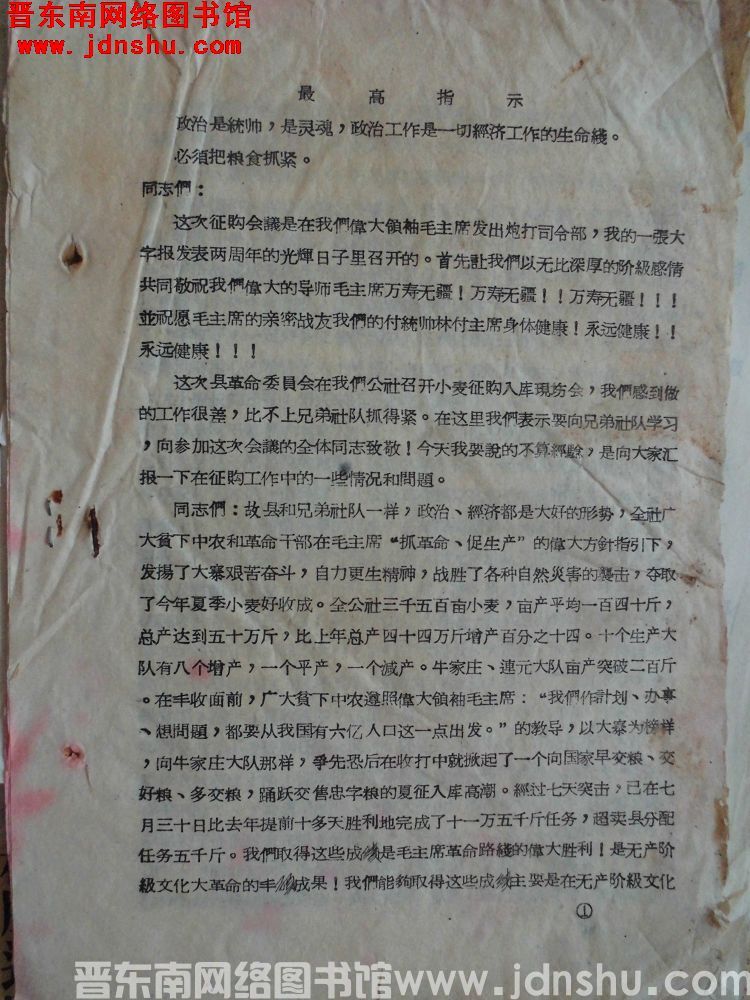 晋东南网络图书馆
www.jdnshu.com
最高指示
政治是統帅，是灵魂，政治工作是一切經济工作的生命綫。
必須把粮食抓紧。
同志們：
这次征购会議是在我們偉大領袖毛主席发出炮打司令部，我的一張大
字报发表两周年的光輝日子里召开的。首先訨我們以无比深厚的阶級感情
共同敬祝我們偉大的导师毛主席万寿无疆！万寿无疆！！万寿无疆！！！
並祝愿毛主席的亲密战友我們的付統帅林付主席身体健康！永远健康！！
永远健康！！！
这次县革命委員会在我們公社召开小麦征购入库現坊会，我們感到做
的工作很差，比不上兄弟社队抓得紧。在这里我們表示要向兄弟社队学习
，向参加这次会議的全体同志致敬！今天我要說的不算經驗，是向大家汇
报一下在征购工作中的一些情况和問題。
同志們：故县和兄弟社队一样，政治、經济都是大好的形势，全社广
大貧下中农和革命干部在毛主席“抓革命、促生产”的偉大方針指引下，
发揚了大寨艰苦奋斗，自力更生精神，战胜了各种自然災害的襲击，夺取
了今年夏季小麦好收成。全公社三千五百亩小麦，亩产平均一百四十斤，
总产达到五十万斤，比上年总产四十四万斤增产百分之十四。十个生产大
队有八个增产，一个平产，一个減产。牛家庄、連元大队亩产突破二百斤
。在丰收面前，广大貧下中农遵照偉大領袖毛主席：“我們作計划、办事
、想問題，都要从我国有六亿人口这一点出发。”的教导，以大寨为榜样
，向牛家庄大队那样，爭先恐后在收打中就掀起了一个向国家早交粮、交
好粮、多交粮，踊跃交售忠字粮的夏征入库高潮。經过七天突击，已在七
月三十日比去年提前十多天胜利地完成了十一万五千斤任务，超卖县分配
任务五千斤。我們取得这些成绩是毛主席革命路綫的偉大胜利！是无产阶
級文化大革命的丰碩成果！我們能夠取得这些成绩主要是在无产阶級文化
①
晋东南网络图书馆www.jdnshu.com